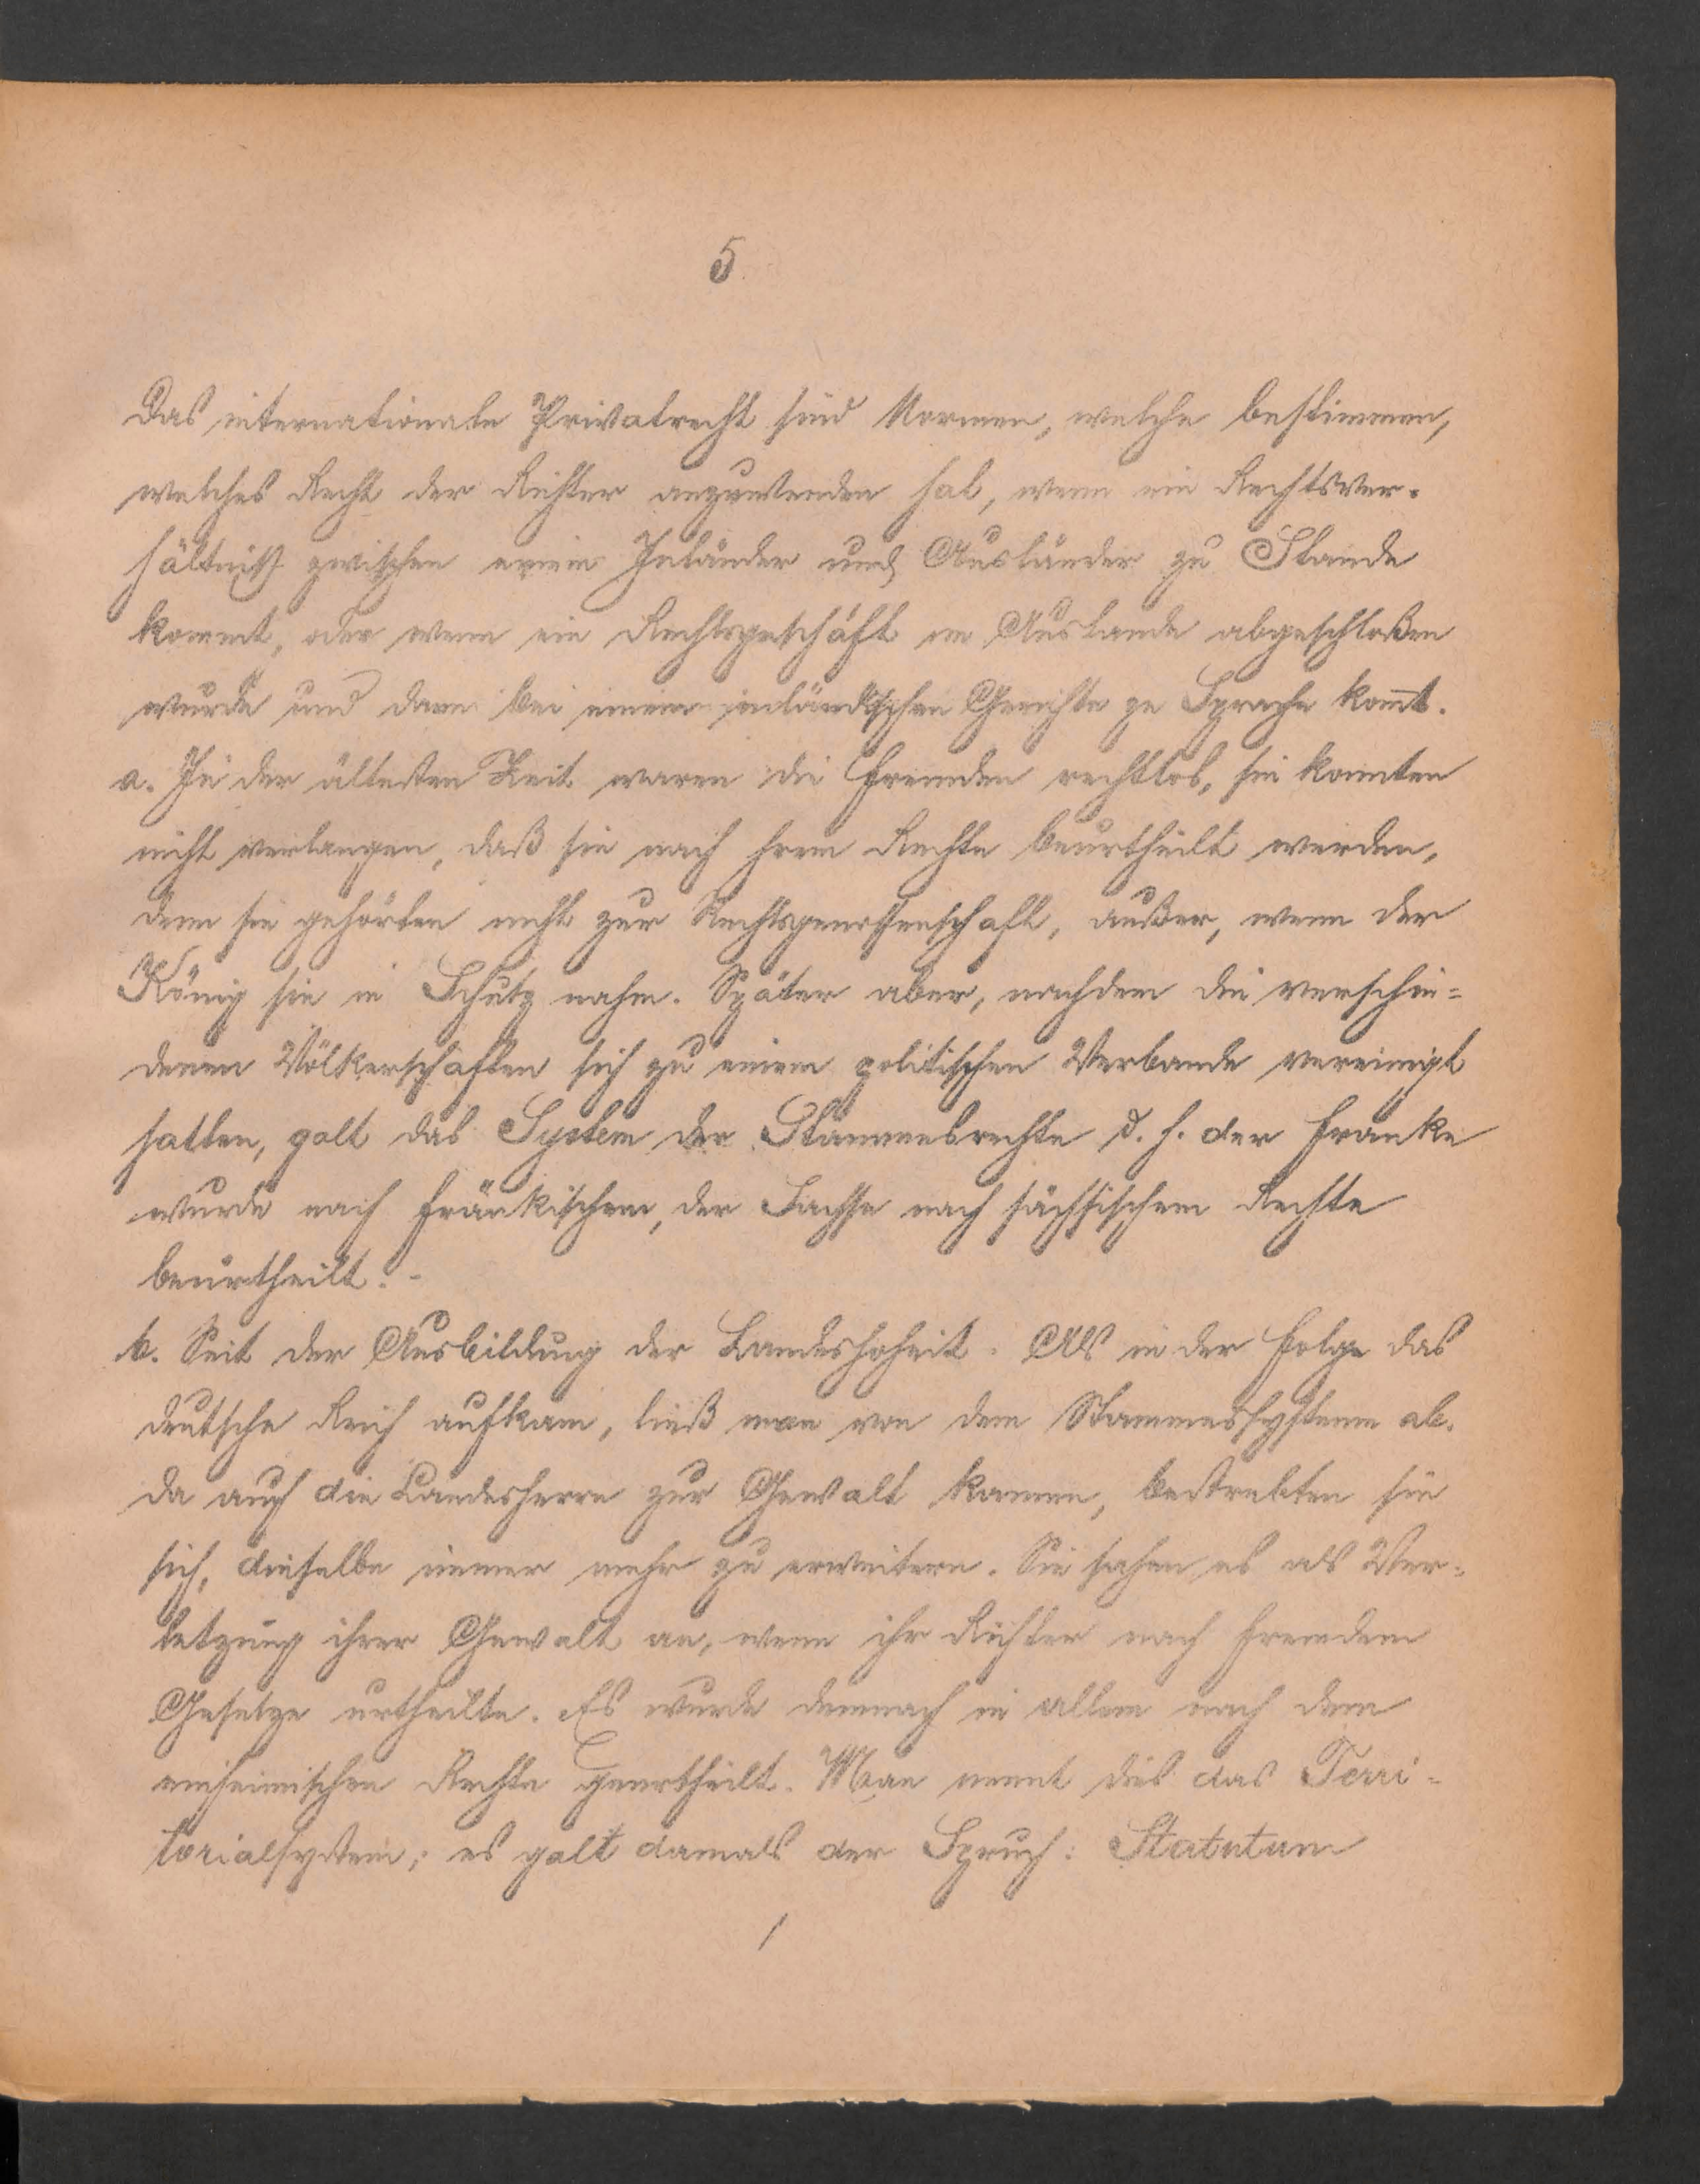 5.
Das internationale Privatrecht sind Normen, welche bestimmen,
welches Recht der Richter anzuwenden hat, wenn ein Rechtsver-
hältniß zwischen einem Inländer und Ausländer zu Stande
kommt, oder wenn ein Rechtsgeschäft im Auslande abgeschloßen
wurde und dann bei einem inländischen Gerichte zu Sprache kom̅t.
a. In der ältesten Zeit waren die Fremden rechtlos, sie konnten
nicht verlangen, daß sie nach ihrem Rechte beurtheilt werden,
denn sie gehörten nicht zur Rechtsgenossenschaft, außer, wenn der
König sie in Schutz nahm. Später aber, nachdem die verschie-
denen Völkerschaften sich zu einem politischen Verbande vereinigt
hatten, galt das System der Stammesrechte d. h. der Franke
wurde nach fränkischem, der Sachse nach sächsischem Rechte
beurtheilt. -
b. Seit der Ausbildung der Landeshoheit. Als in der Folge das
deutsche Reich aufkam, ließ man von dem Stammessysteme ab.
Da auch die Landesherrn zur Gewalt kamen, bestrebten sie
sich, dieselbe immer mehr zu erweitern. Sie sahen es als Ver-
letzung ihrer Gewalt an, wenn ihr Richter nach fremdem
Gesetze urtheilte. Es wurde demnach in allem nach dem
einheimischen Rechte geurtheilt. Man nennt dies das Terri-
torialsystem; es galt damals der Spruch: Statutum